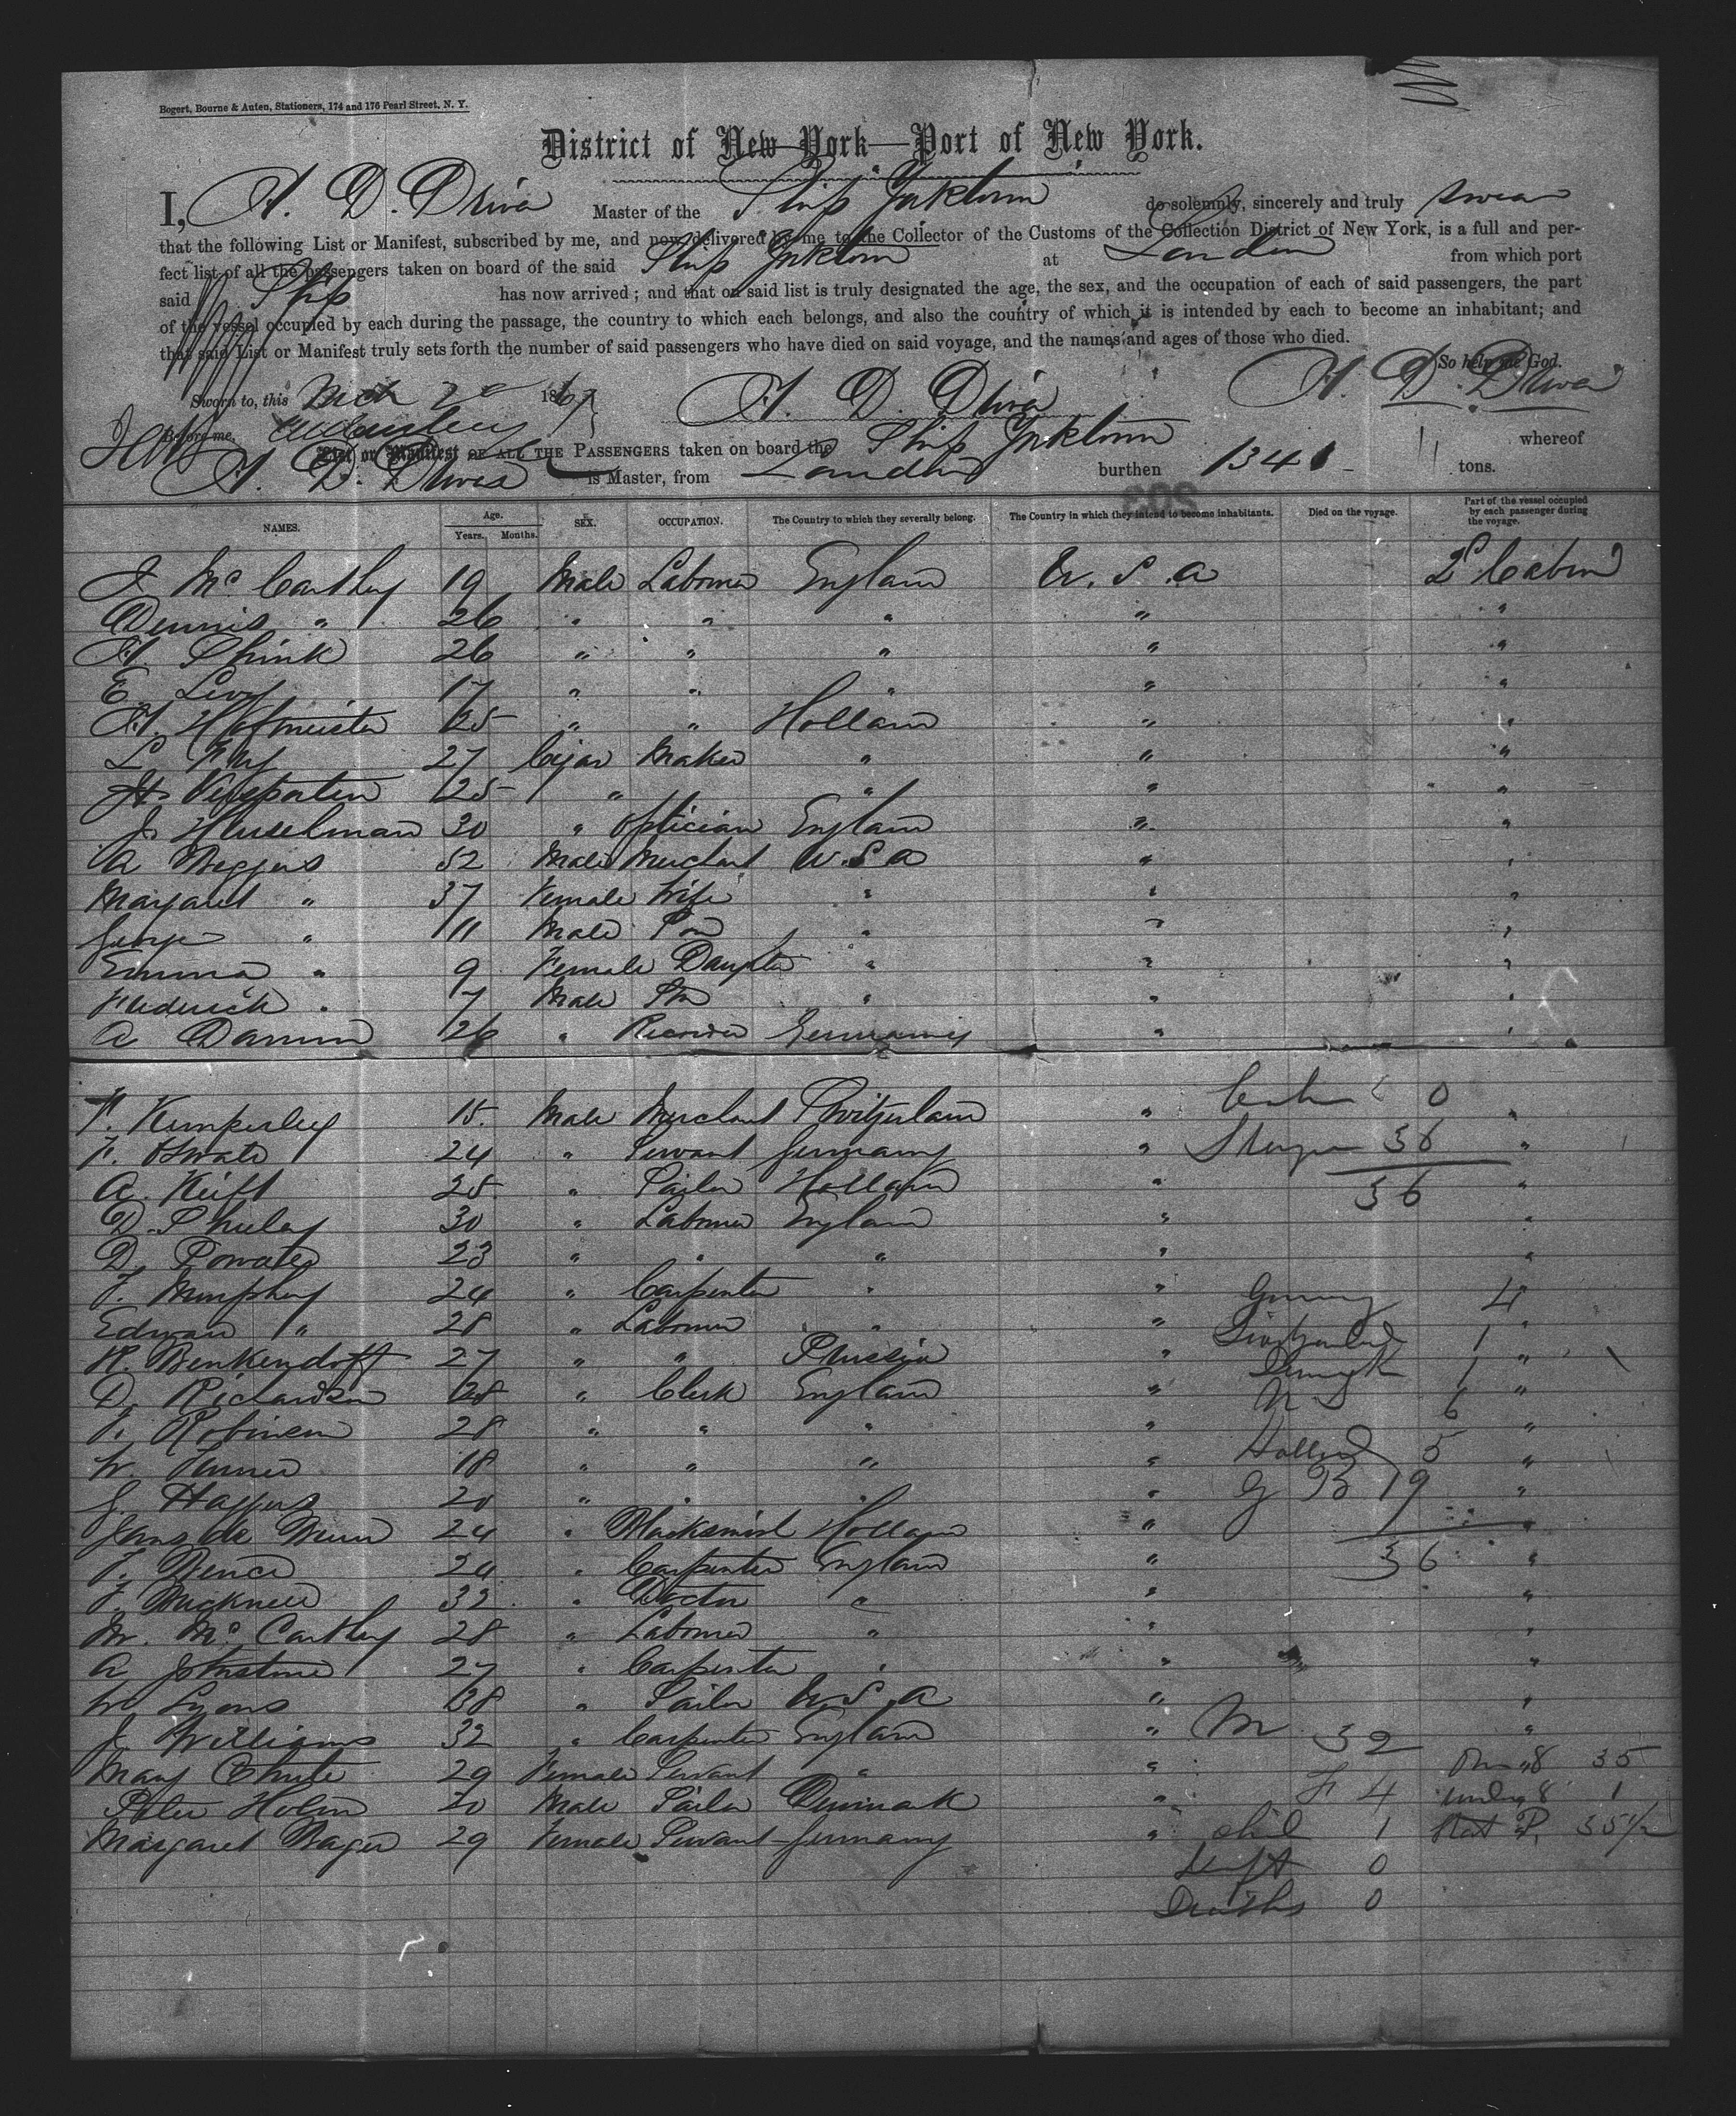 Bogert, Bourne & Auten, Stationers, 174 and 176 Pearl Street, N. Y.
District of New York—Port of New York.
I, A. D. Driver Master of the Ship Yorktown do solemnly, sincerely and truly swear
that the following List or Manifest, subscribed by me, and now delivered by me to the Collector of the Customs of the Collection District of New York, is a full and per-
fect list of all the passengers taken on board of the said Ship Yorktown at London from which port
said Ship has now arrived; and that on said list is truly designated the age, the sex, and the occupation of each of said passengers, the part
of the vessel occupied by each during the passage, the country to which each belongs, and also the country of which it is intended by each to become an inhabitant; and
that said List or Manifest truly sets forth the number of said passengers who have died on said voyage, and the names and ages of those who died.
So help me God.
Sworn to, this 1867 A. D. Driver A. D. Driver
Before me,
List or Manifest OF ALL THE PASSENGERS taken on board the Ship Yorktown whereof
A. D. Driver is Master, from London burthen 1340 tons.
NAMES. Age. Years. Months. SEX. OCCUPATION. The Country to which they severally belong. The Country in which they intend to become inhabitants. Died on the voyage. Part of the vessel occupied by each passenger during the voyage.
J Mc Carthy 19 Male Laborer England U.S.A 2d Cabin
Dennis " 26 " " " " "
H. Shink 26 " " " " "
E. Levy 17 " " " " "
H. Hofmeister 25 " " Holland " "
L. 27 Cigar Maker " " "
H. 25 " " " "
J. Heuselman 30 " Optician England " "
A Beggers 52 Male Merchant U.S.A " "
Margaret " 37 Female Wife " " "
George " 11 Male Son " " "
Emma " 9 Female Daughter " " "
Frederick " 7 Male Son " " "
A Damm 26 " Germany " "
F. Kemperley 15 Male Merchant Switzerland " Cabin 0 "
F. 24 " Servant Germany " Steerage 36 "
A. Keift 25 " Sailor Holland " 36 "
D. 30 " Laborer England " "
D. 23 " " " " "
F. Murphey 24 " Carpenter " " Germany 4 "
Edward " 28 " Laborer " " Switzerland 1 "
H. Benkendorff 27 " " Prussia " Denmark 1 "
D. Richardson 28 " Clerk England " U S 6 "
F. Robinson 28 " " " " "
W. Turner 18 " " " " Holland 5 "
J. Haggers 20 " " " " G B 19 "
Jans de 24 " Blacksmith Holland " "
F. Pence 24 " Carpenter England " 36 "
F. Bucknell 32 " Doctor " " "
M. Mc Carthy 28 " Laborer " " "
A Johnstone 27 " Carpenter " " "
W Lyons 38 " Sailor U.S.A " "
J. Williams 32 " Carpenter England " M 32 "
Mary Chute 29 Female Servant " " F 4 Over 8 35
Peter Holm 20 Male Sailor Denmark " under 8 1
Margaret Bager 29 Female Servant Germany " Chil 1 Stat P. 35½
0
Deaths 0